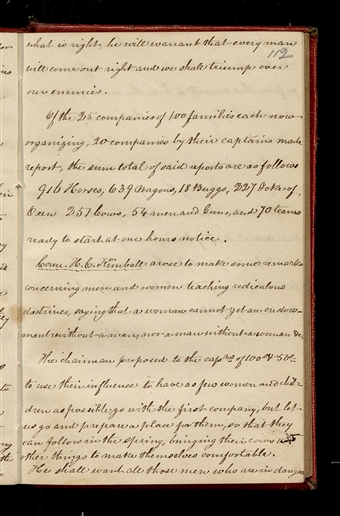 what is right, he will warrant that every man
112
will come out right and we shall triump over
our enemies.
Of the 25 companies of 100 families each now
organizing, 20 companies by their captains made
report, the sum total of said reports are as follows
916 Horses, 639 Wagons, 18 Buggs, 227 Yoke of
Oxen 257 Cows, 54 men and Guns, and 70 teams
ready to start at one hours notice.
Coun. H. C. Kimball arose to make some remarks
concerning men and women teaching rediculous
doctrines, saying that a woman cannot get an endow-
ment without a man, nor a man without a woman &c.
The chairman proposed to the capts of 100s & 50s
to use their influence to have as few women and chil-
dren as possible go with the first company, but let
us go and prepare a place for them, so that they
can follow in the spring, bringing their cows &
other things to make themselves comfortable.
He shall want all those men who are in danger